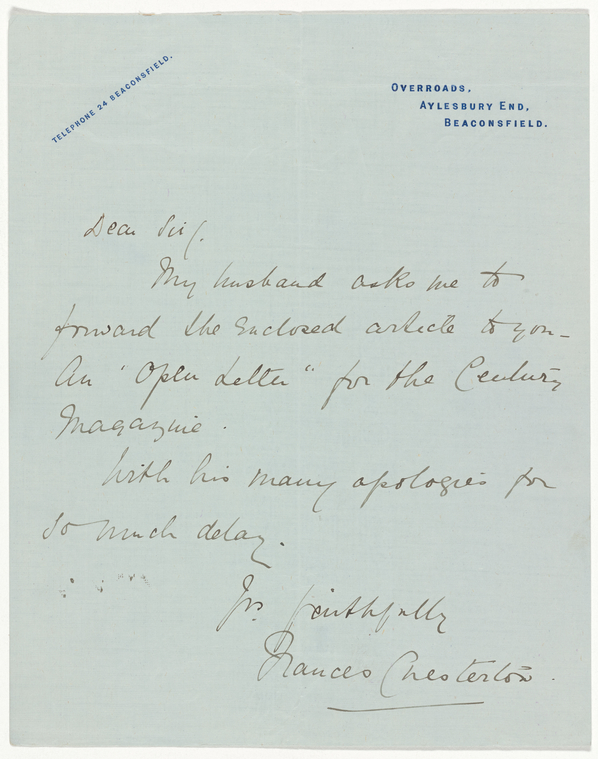 TELEPHONE 24 BEACONSFIELD.
OVERROADS,
AYLESBURY END,
BEACONSFIELD.
Dear Sir/.
My husband asks me to
forward the enclosed article to you—
An "Open Letter" for the Century
Magazine.
With his many apologies for
so much delay.
Yrs. faithfully
Frances Chesterton.